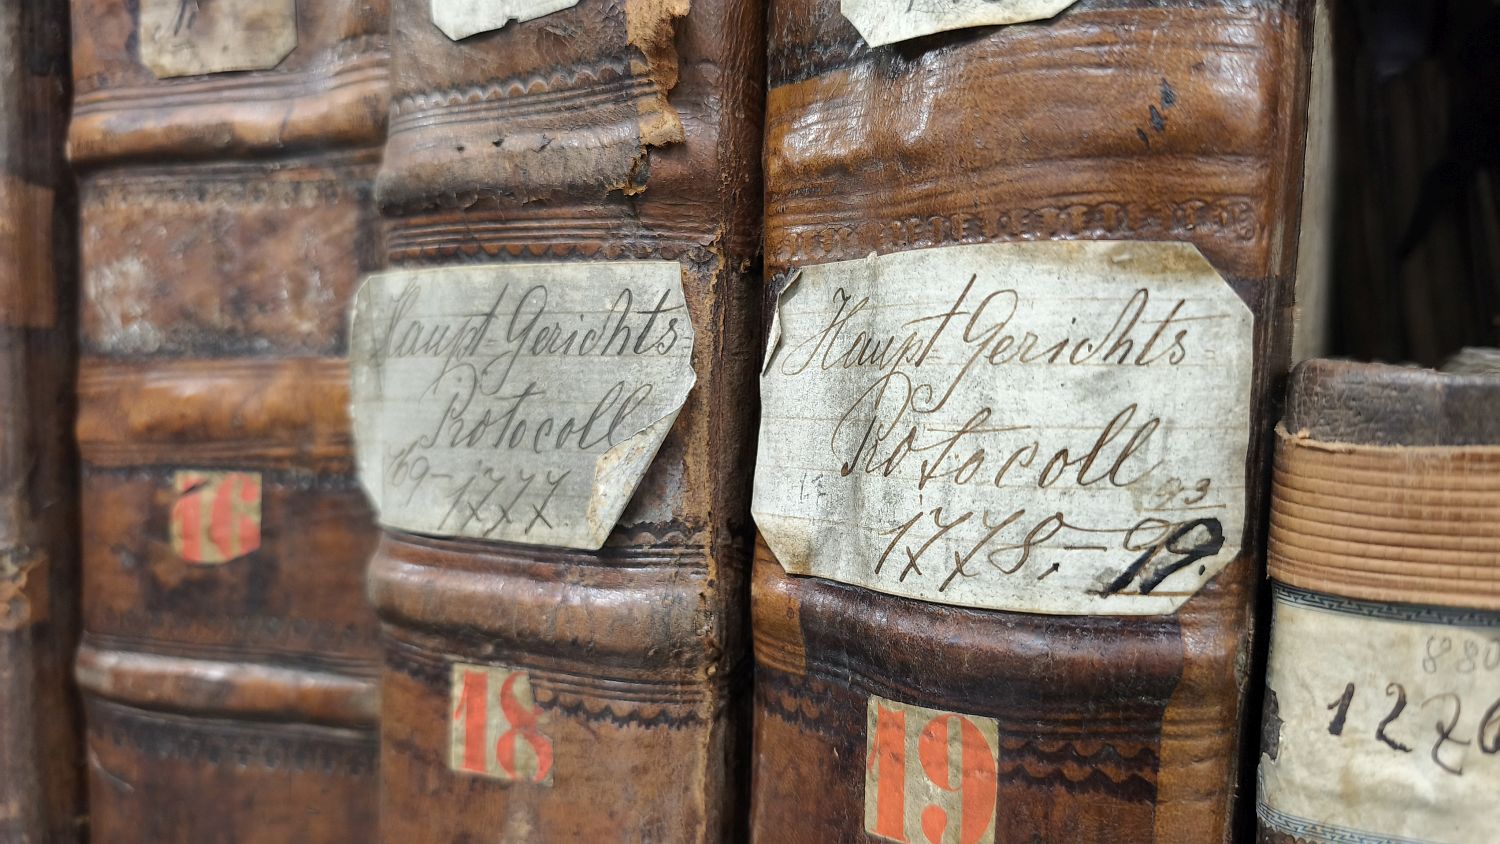 16
Haupt-Gerichts-
Protocoll
69-1777
18
Haupt-Gerichts-
Protocoll
93
1778,-99.
19
880
1276